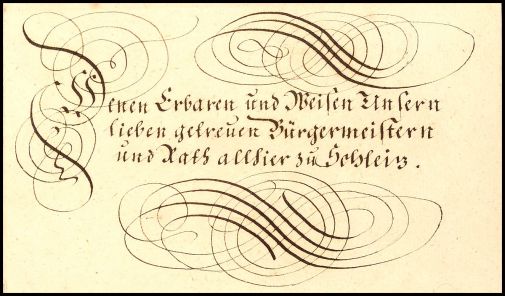 Denen Erbaren und Weisen Unsern
lieben getreuen Bürgermeistern
und Rath allhier zu Schleiz.